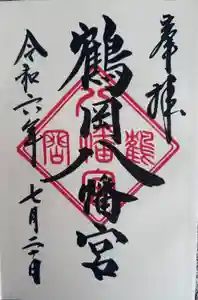 奉拝
鶴岡八幡宮
令和六年七月二十日
鶴
八幡宮
岡